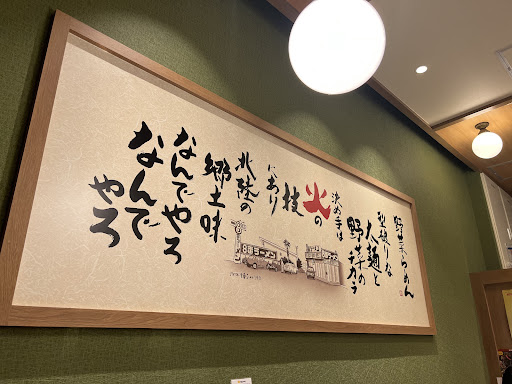 野菜らーめん
型破りな
太麺と
野菜の
チカラ
決め手は
火の
技
にあり
北陸の
郷土味
なんでやろ
なんで
やろ
8番ラーメン